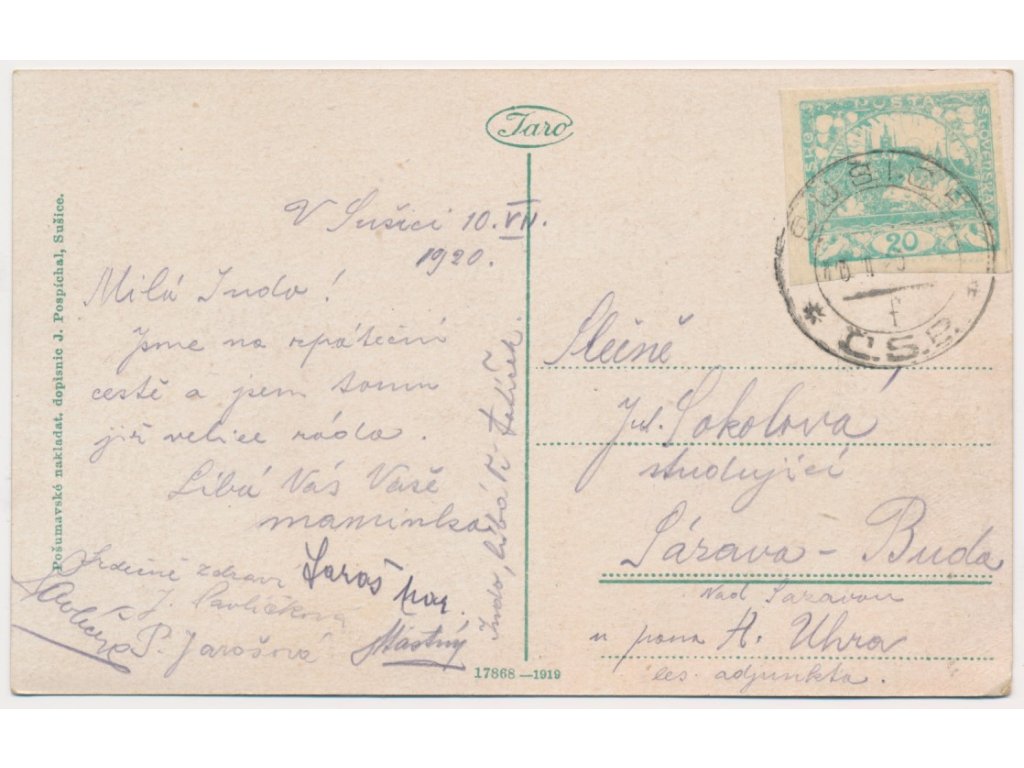 Taro
V Sušici 10. VII.
1920.
Milá Indo!
Jsme na zpáteční
cestě a jsem tomu
již velice ráda.
Líbá Vás Vaše
maminka
Srdečně zdraví
J. Pavlíčková
P. Jarošová
Šťastný
Indo, líbá Tě tatíček
Pošumavské nakladat. dopisnic J. Pospíchal, Sušice.
17868—1919
POŠTA
20
SUŠICE
Č.S.P.
f
Slečně
Jul. Sokolova
studující
Sázava - Buda
nad Sazavou
u pana A. Uhra
les. adjunkta.